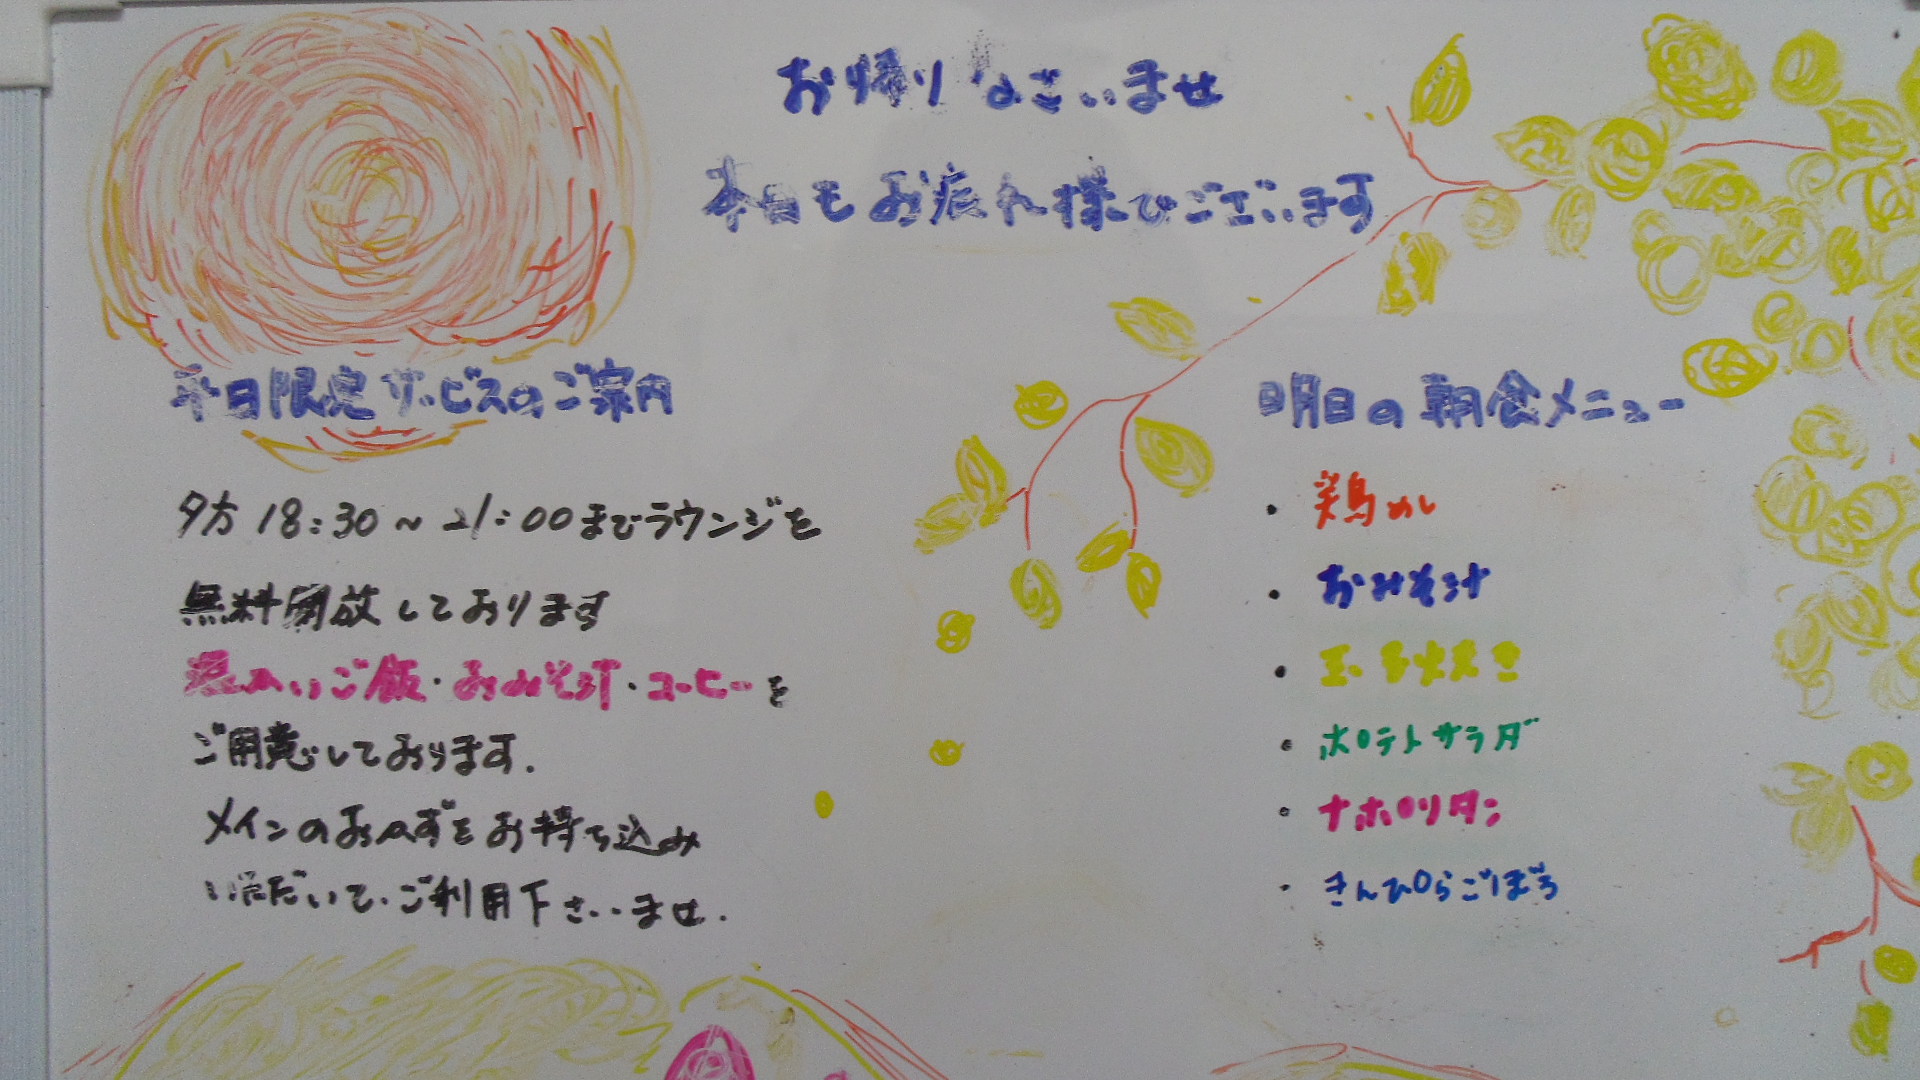 お帰りなさいませ
本日もお疲れ様でございます
平日限定サービスのご案内
夕方18:30～21:00までラウンジを
無料開放しております
温かいご飯・おみそ汁・コーヒーを
ご用意しております.
メインのおかずをお持ち込み
いただいて、ご利用下さいませ.
明日の朝食メニュー
・鶏めし
・おみそ汁
・玉子焼き
・ポテトサラダ
・ナポリタン
・きんぴらごぼう